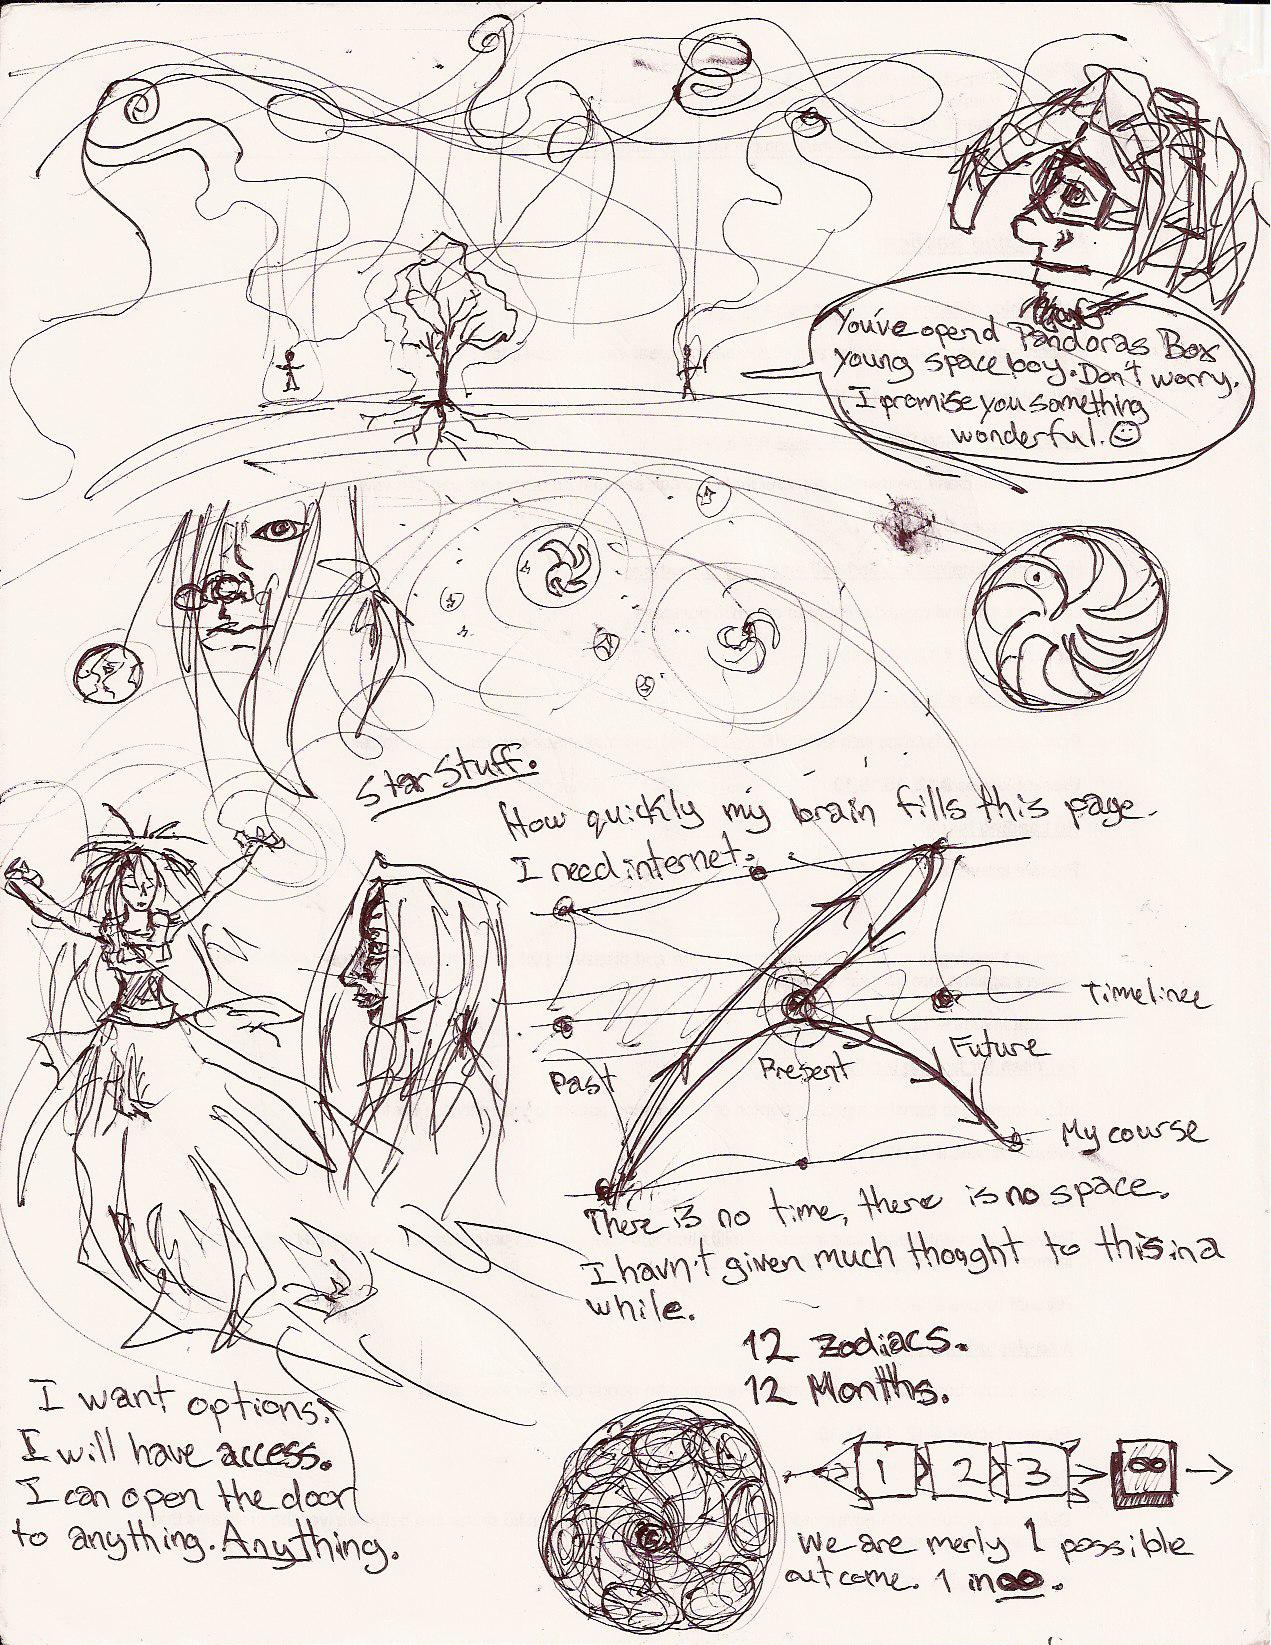 You've opend Pandoras Box
young space boy. Don't worry.
I promise you something
wonderful. ☺
Star Stuff.
How quickly my brain fills this page.
I need internet.
Timelinee
Past
Present
Future
My course
There is no time, there is no space.
I havn't given much thoght to this in a
while.
12 Zodiacs.
12 Months.
I want options.
I will have access.
I can open the door
to anything. Anything.
1 2 3 ∞
We are merly 1 possible
outcome. 1 in ∞.